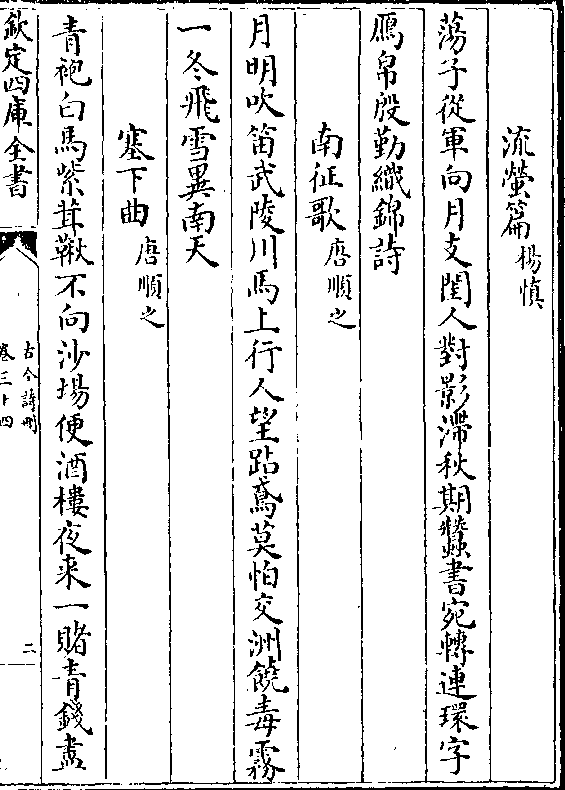 流螢篇楊慎
蕩子從軍向月支閨人對影滯秋期蠶書宛轉連環字
鴈帛殷勤織錦詩
南征歌唐順之
月明吹笛武陵川馬上行人望跕鳶莫怕交洲饒毒霧
一冬飛雪異南天
塞下曲唐順之
青袍白馬紫茸鞦不向沙塲便酒樓夜来一賭青錢盡
欽定四庫全書
古今詩刪
卷三十四
二